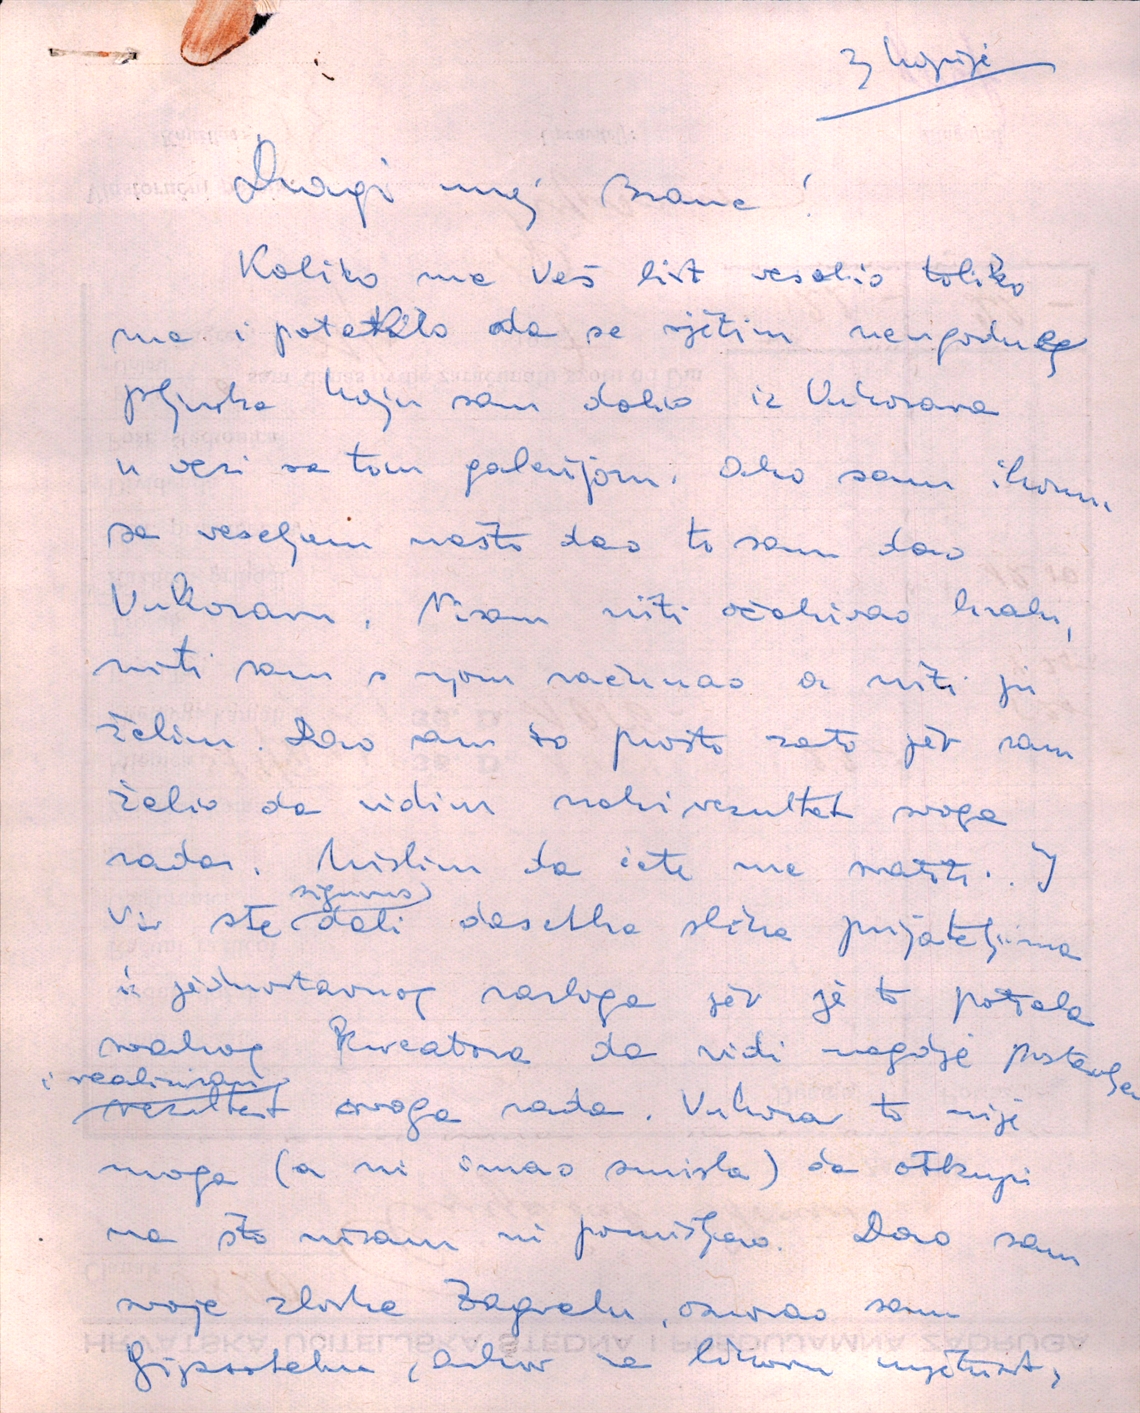 Dragi moj Brane!
Koliko me Vaš list veselio toliko
me i potaklo da se sjetim neugodnog
pljuska koju sam dobio iz Vukovara
u vezi sa tom galerijom. Ako sam ikomu
sa veseljem nešto dao to sam dao
Vukovaru. Nisam niti očekivao hvalu,
niti sam s njom računao a niti ju
želim. Dao sam to prosto zato jer sam
želio da vidim neki rezultat svoga
rada. Mislim da ćete me shvatiti. I
Vi ste sigurno dali desetke slika prijateljima
iz jednostavnog razloga jer je to potreba
svakog kreatora da vidi negdje postavljen
i realiziran
rezultat svoga rada. Vukovar to nije
mogao (a ni imao smisla) da otkupi
na što nisam ni pomišljao. Dao sam
svoje zbirke Zagrebu, osnovao sam
Gipsoteku, arhiv za likovnu umjetnost,
HRVATSKA UČITELJSKA ŠTEDNA I ZADRUGA